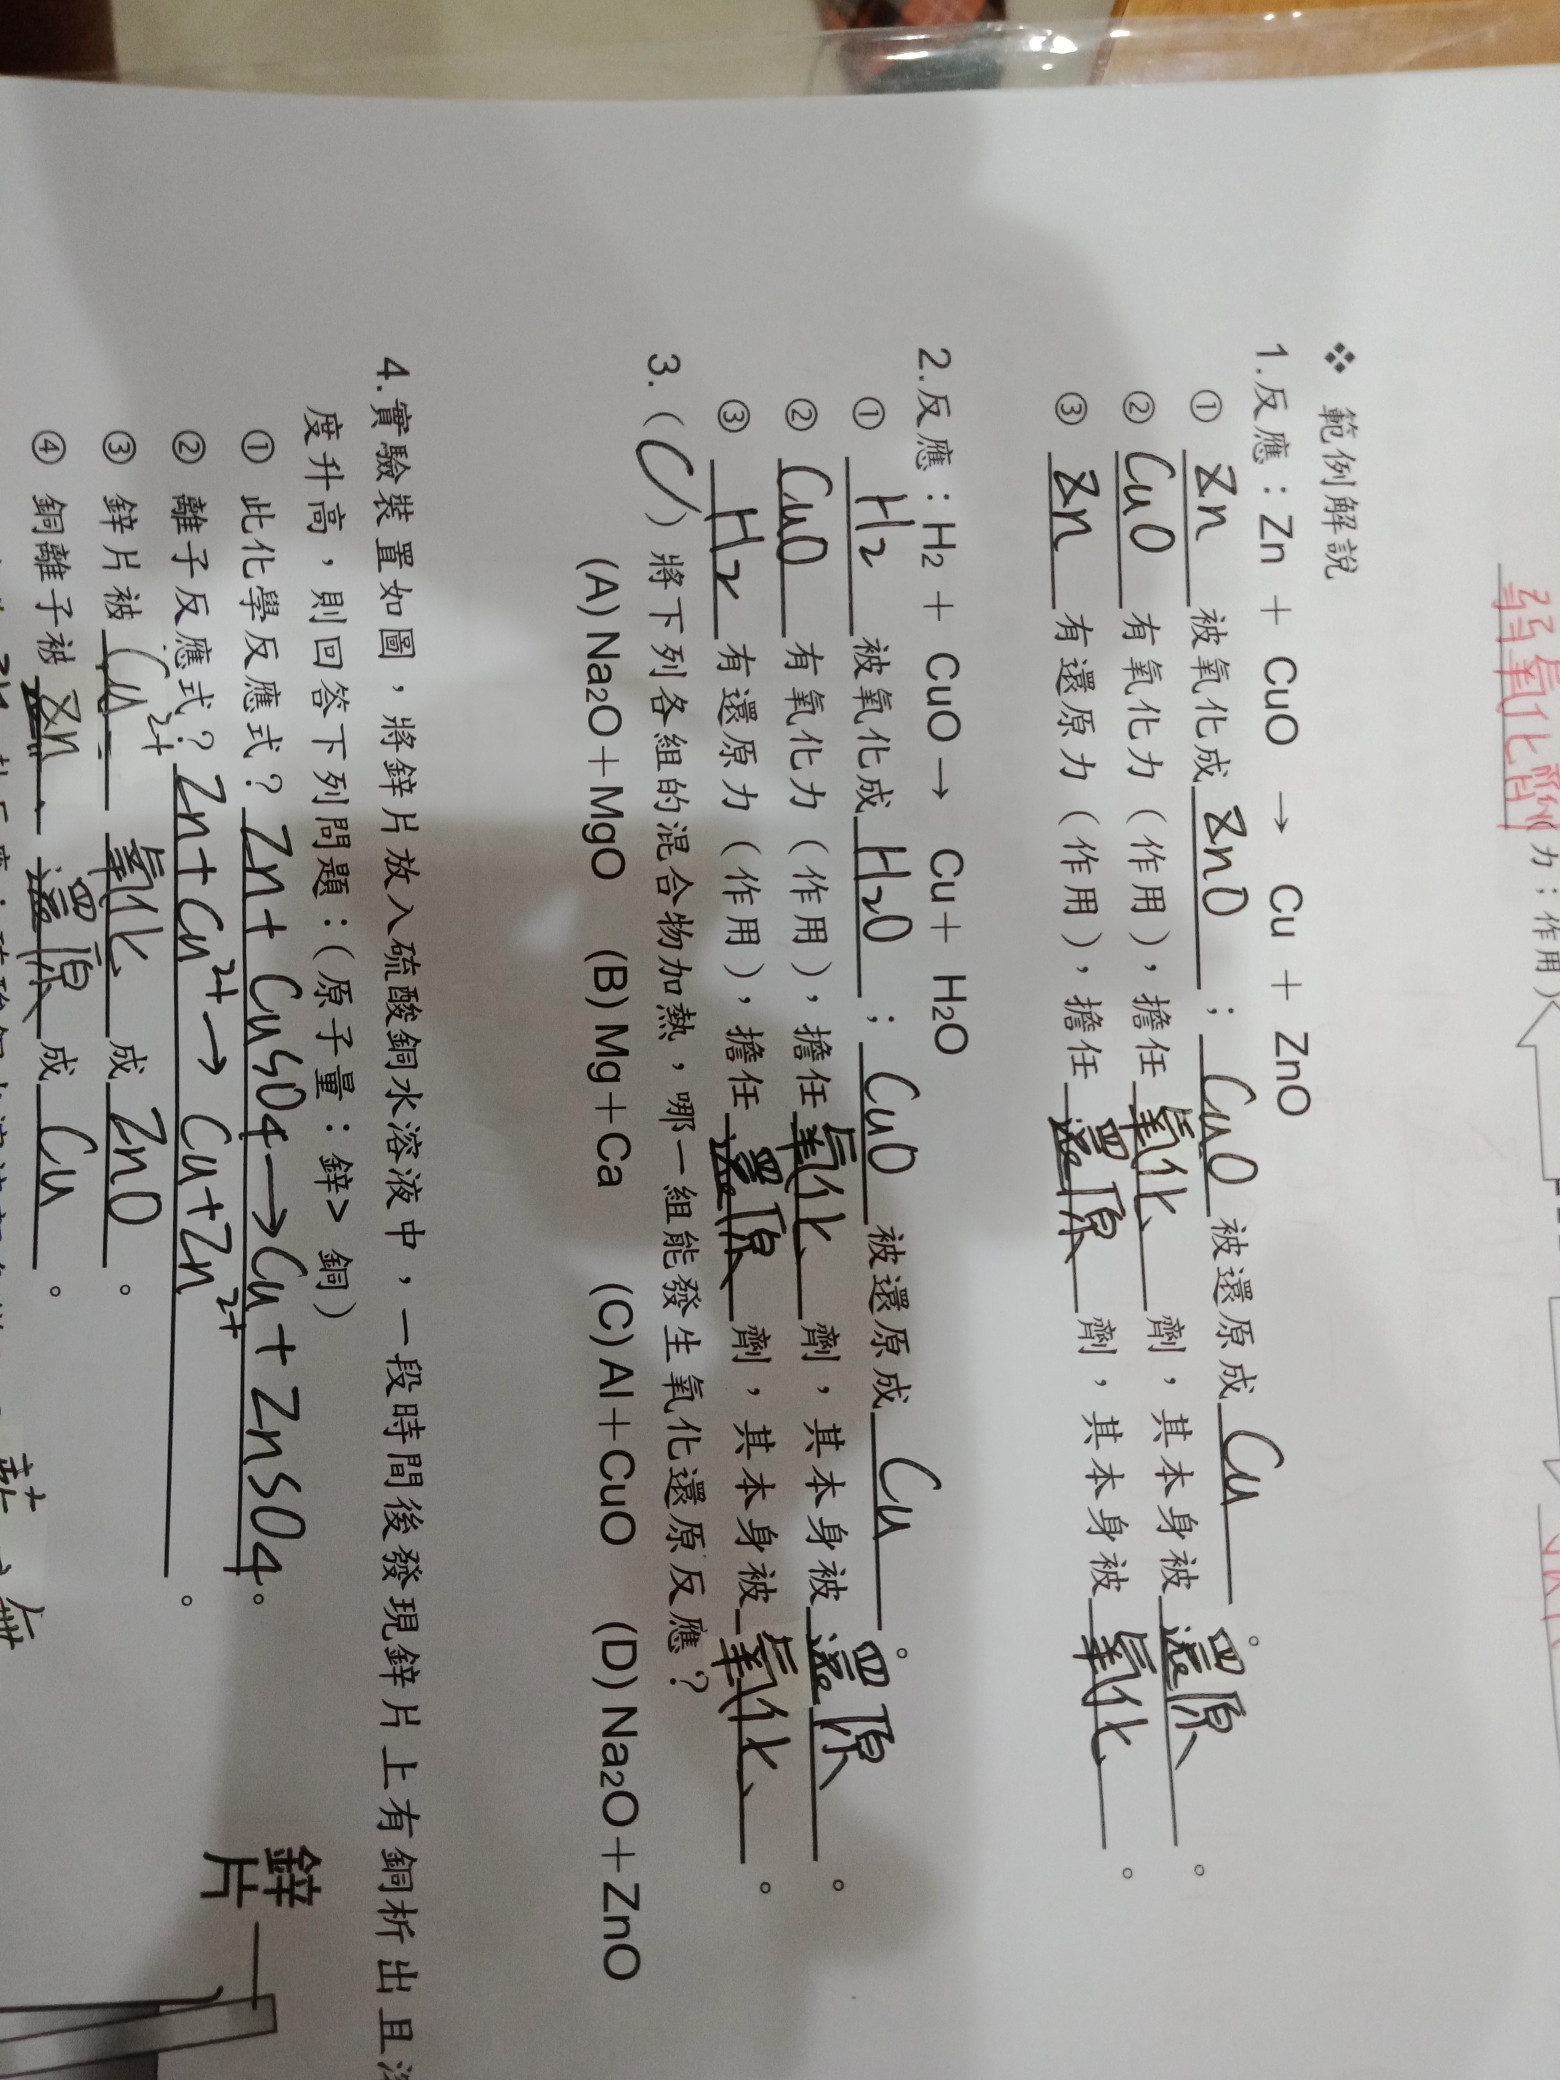 弱氧化劑(力；作用)
❖ 範例解說
1.反應：Zn + CuO → Cu + ZnO
① Zn 被氧化成 ZnO ；CuO 被還原成 Cu 。
② CuO 有氧化力（作用），擔任 氧化 劑，其本身被 還原 。
③ Zn 有還原力（作用），擔任 還原 劑，其本身被 氧化 。
2.反應：H2 + CuO → Cu + H2O
① H2 被氧化成 H2O ；CuO 被還原成 Cu 。
② CuO 有氧化力（作用），擔任 氧化 劑，其本身被 還原 。
③ H2 有還原力（作用），擔任 還原 劑，其本身被 氧化 。
3.（C）將下列各組的混合物加熱，哪一組能發生氧化還原反應？
(A) Na2O＋MgO (B) Mg＋Ca (C) Al＋CuO (D) Na2O＋ZnO
4.實驗裝置如圖，將鋅片放入硫酸銅水溶液中，一段時間後發現鋅片上有銅析出且
度升高，則回答下列問題：（原子量：鋅> 銅）
① 此化學反應式？Zn + CuSO4 → Cu + ZnSO4。
② 離子反應式？Zn + Cu2+ → Cu + Zn2+ 。
③ 鋅片被 Cu2+ 氧化 成 ZnO 。
④ 銅離子被 Zn 、還原 成 Cu 。
鋅
片